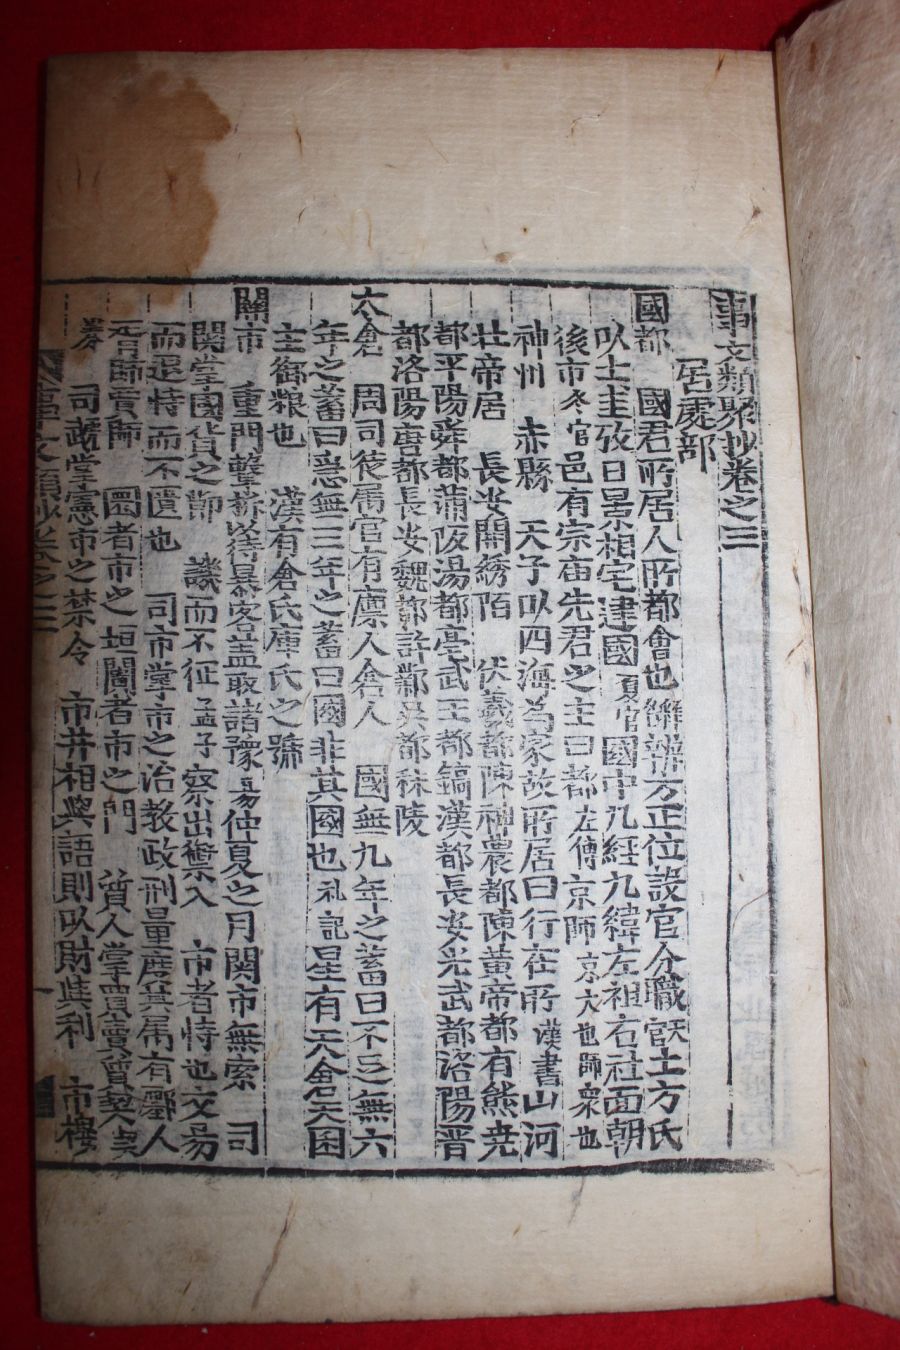 事文類聚抄卷之三
居處部
國都 國君所居人所都會也 辨方正位設官分職 土方氏
以土圭攷日景相宅建國 夏官 國中九経九緯左祖右社面朝
後市 冬官 邑有宗庙先君之主曰都 左傳 京師 京大也師衆也
神州 赤縣 天子以四海為家故所居曰行在所 漢書 山河
壮帝居 長安開綉陌 伏羲都陳神農都陳黃帝都有熊尭
都平陽舜都蒲阪湯都亳武王都鎬漢都長安光武都洛陽晋
都洛陽唐都長安魏都許鄴吳都秣陵
太倉 周司徒属官有廪人倉人 國無九年之蓄曰不乏無六
年之蓄曰急無三年之蓄曰國非其國也 礼記 星有天倉天囷
主御粮也 漢有倉氏庫氏之號
關市 重門擊柝以待暴客盖取諸豫 易 仲夏之月関市無索 司
関掌國貨之節 譏而不征 孟子 察出禦入 市者恃也交易
而退恃而不匱也 司市掌市之治教政刑量度其属有鄽人
胥師賈師 圜者市之垣闠者市之門 質人掌賣儥質契
券 司蔬掌憲市之禁令 市井相與語則以財與利 市樓
事文類抄卷之三 一